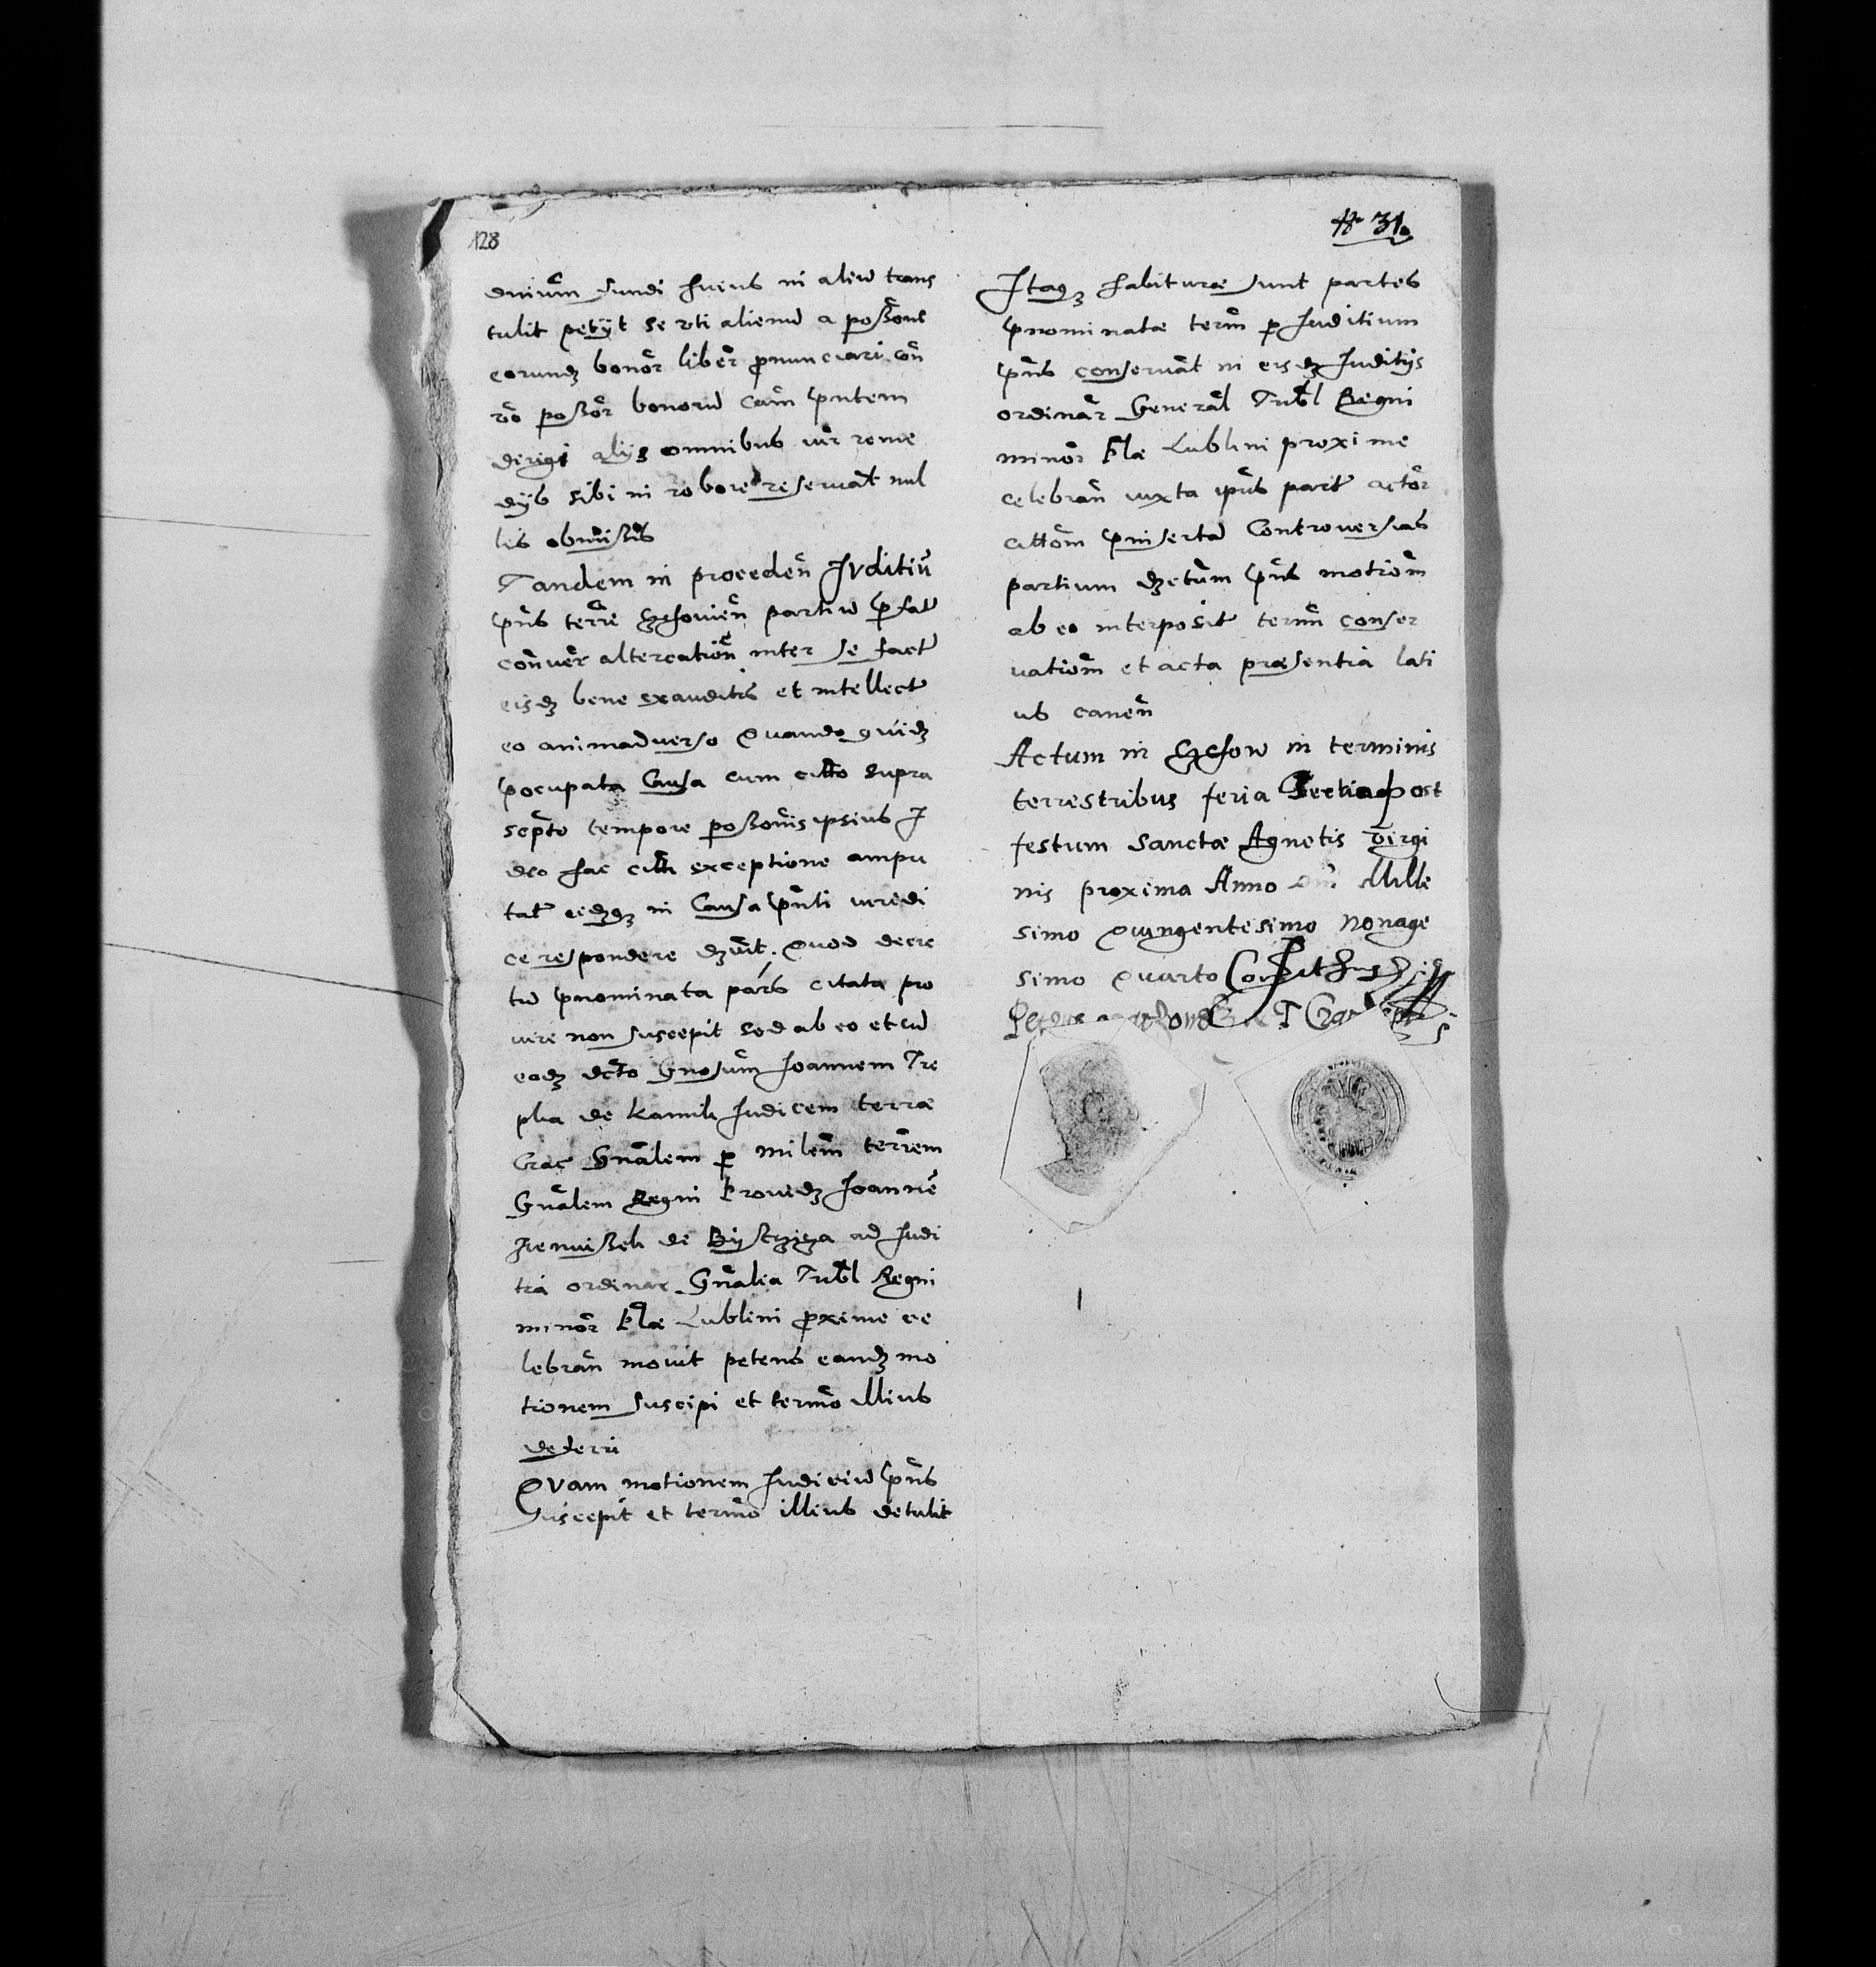 128
# 31.
dnium fundi huius in aliu trans
tulit petijt se uti alienu a possone
eorundz bonor liber pronunciari con
ro possor bonoru cam pntem
dirigi alijs omnibus iur reme
dijs sibi in robore reservat nul
lis obmissis
Tandem in proceden Juditiu
pns terre Xchowien partiu pfat
conver altercation inter se fact
eisdz bene exauditis et intellect
eo animadverso Quando quidz
poccupata Causa cum citto supra
scpto tempore possonis ipsius I
deo hac citti exceptione ampu
tat eidz in Causa pnti viredi
ce respondere dzvit. Quod decre
tu pnominata pars citata pro
vere non suscepit sed ab eo et cu
eodz dcto Gnosum Joannem Tre
pka de Kamik Judicem terrae
Crac Gnalem p milem terrem
Gnalem Regni Providz Joanne
de Bijstrzyca ad Judi
tia ordinar Gnalia Tribl Regni
minor Plae Lublini proxime ce
lebran movit petens eandz mo
tionem suscipi et termo illius
deferri
Quam motionem Judiciu pns
suscepit et termo illius detulit
Itaqz habiturae sunt partes
pnominatae term p Juditium
pns conservat in eisdz Juditijs
ordinar General Tribl Regni
minor Plae Lublini proxime
celebran iuxta ipius part actor
cittom pinserta Controversias
partium dzetum pns motiom
ab eo interposit termi conser
vatiom et acta praesentia lati
us canen
Actum in Xchow in terminis
terrestribus feria Tertia post
festum Sanctae Agnetis virgi
nis proxima Anno dni Mille
simo Quingentesimo Nonage
simo Quarto